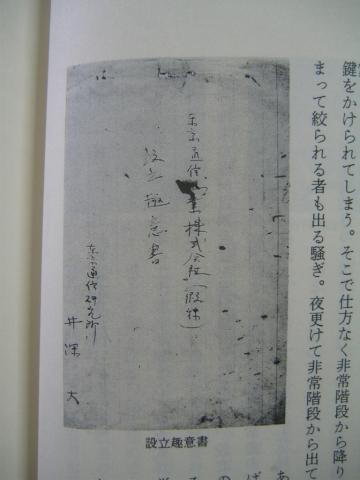 鍵をかけられてしまう。そこで仕方なく非常階段から降り
まって絞られる者も出る騒ぎ。夜更けて非常階段から出て
東京通信工業株式会社(假称)
設立趣意書
東京通信研究所
井深 大
設立趣意書